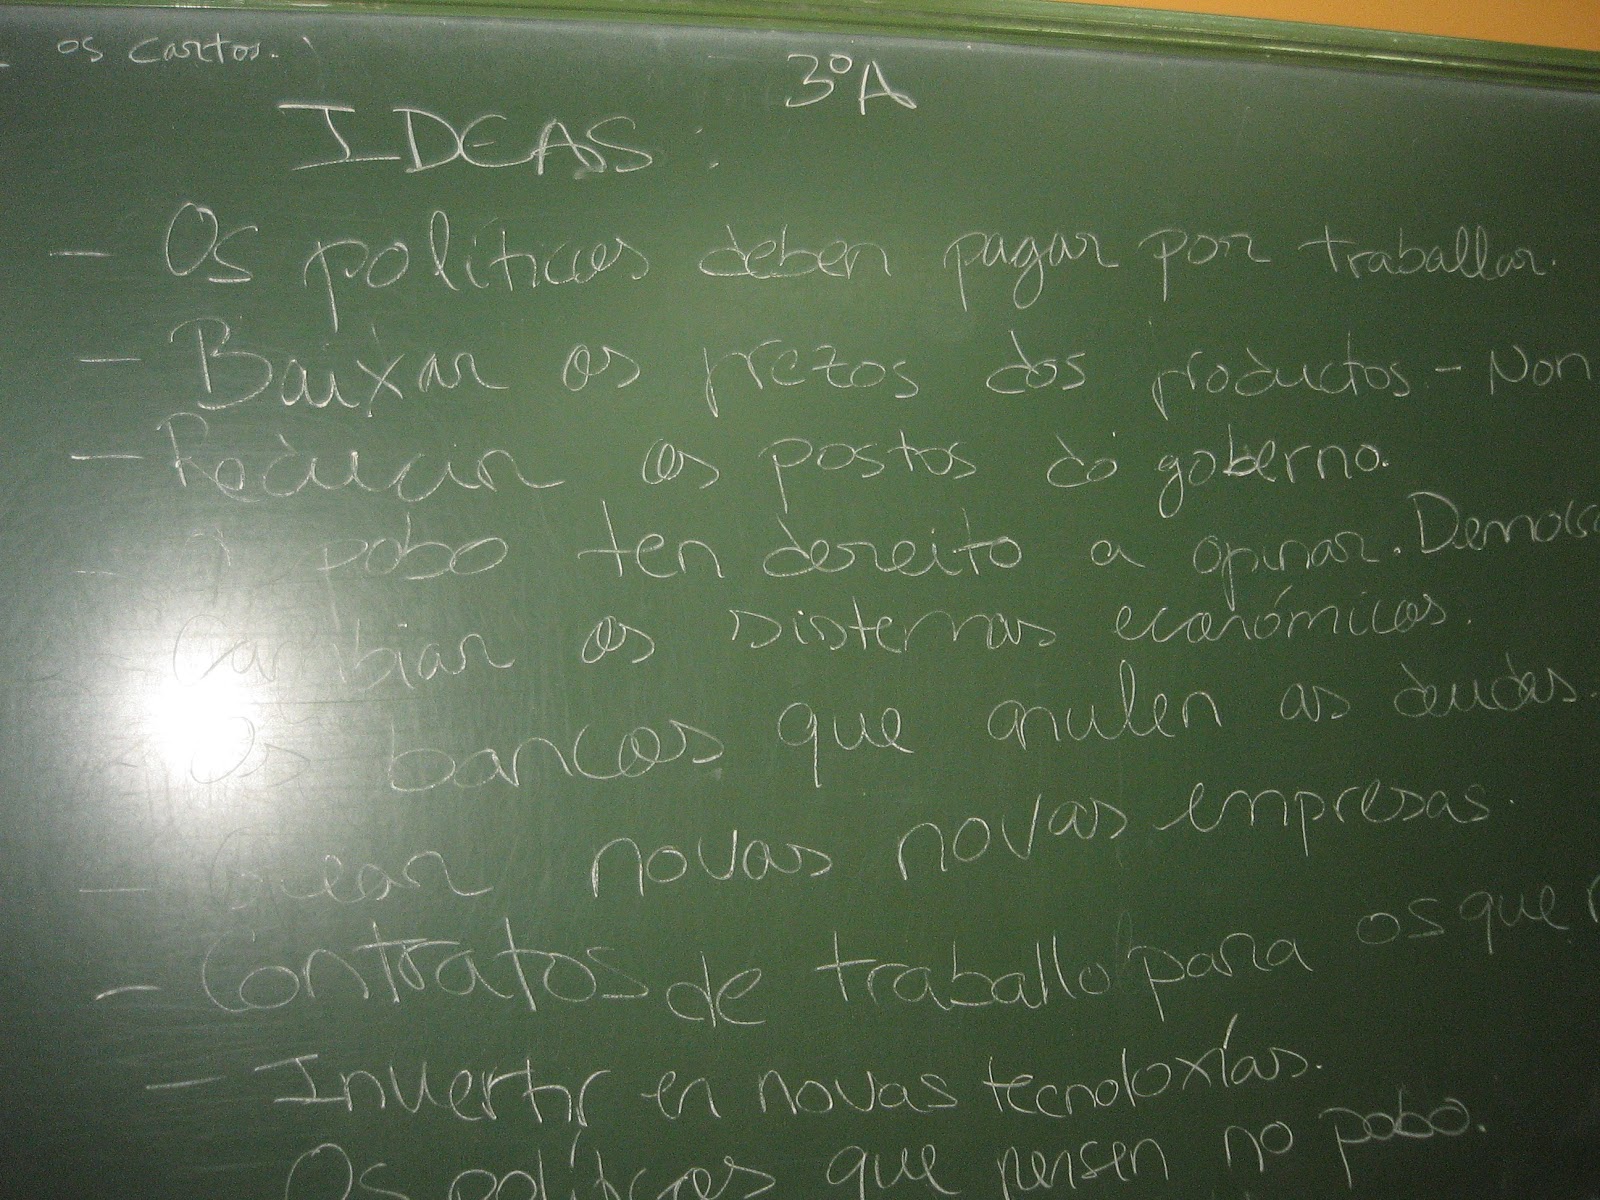 os cartos.
3ºA
IDEAS:
- Os políticos deben pagar por traballar.
- Baixar os prezos dos productos - Non
- Reducir os postos do goberno.
- O pobo ten dereito a opinar.
- Cambiar os sistemas económicos.
- Os bancos que anulen as deudas.
- Crear novas novas empresas.
- Contratos de traballo para os que
- Invertir en novas tecnoloxías.
Os políticos que pensen no pobo.